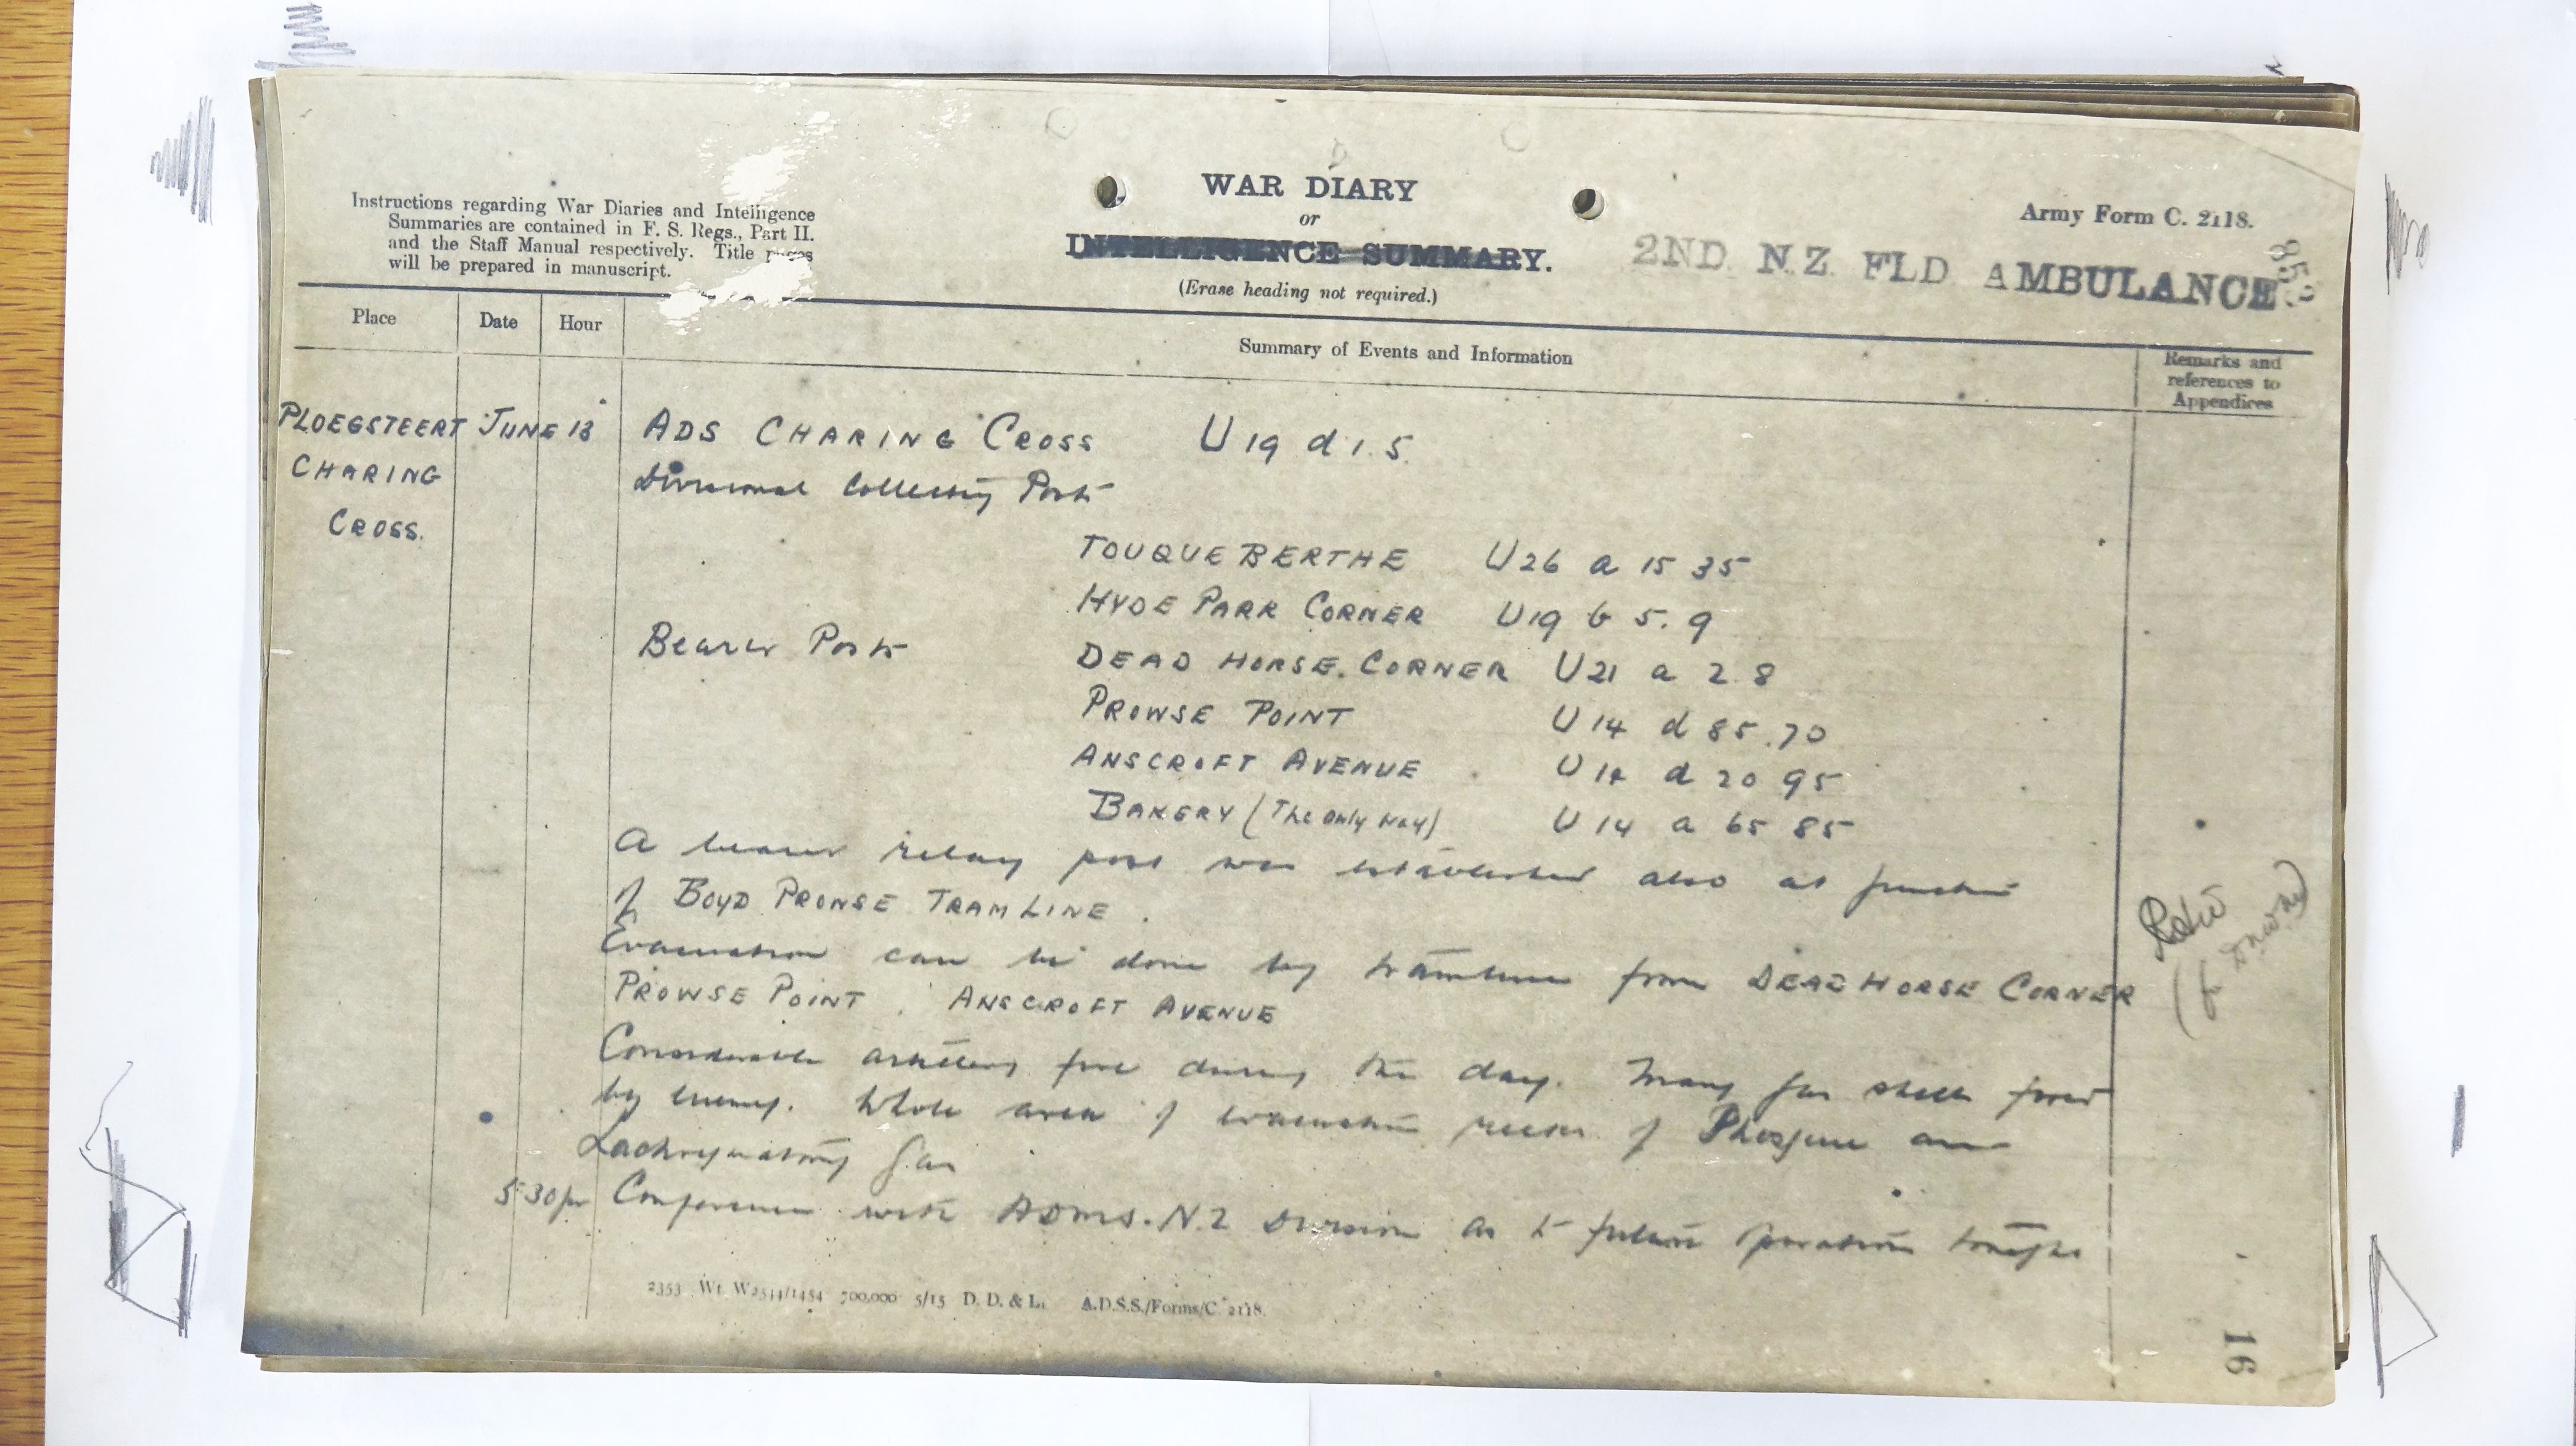 Instructions regarding War Diaries and Intelligence
Summaries are contained in F. S. Regs., Part II.
and the Staff Manual respectively. Title pages
will be prepared in manuscript.
WAR DIARY
or
INTELLIGENCE SUMMARY.
(Erase heading not required.)
Army Form C. 2118.
2ND N.Z. FLD AMBULANCE
Place
Date
Hour
Summary of Events and Information
Remarks and
references to
Appendices
PLOEGSTEERT JUNE 13 ADS CHARING CROSS U 19 d 1.5.
CHARING
Divisional Collecting Posts
CROSS.
TOUQUE BERTHE U26 a 15 35
HYDE PARK CORNER U19 b 5.9
Bearer Posts DEAD HORSE. CORNER U21 a 2 8
PROWSE POINT U 14 d 85.70
ANSCROFT AVENUE U 14 d 20 95
BAKERY (The Only Way) U 14 a 65 85
A bearer relay post was established also at junction
of BOYD PROWSE TRAM LINE.
Evacuation can be done by tramline from DEAD HORSE CORNER
PROWSE POINT, ANSCROFT AVENUE
Considerable artillery fire during the day. Many gas shells fired
by enemy. Whole area of evacuation reeks of Phosgene and
Lachrymatory Gas
5.30pm Conference with ADMS. N.Z Division as to future operations tonight
2353 Wt. W2544/1454 700,000 5/15 D. D. & L. A.D.S.S./Forms/C. 2118.
16